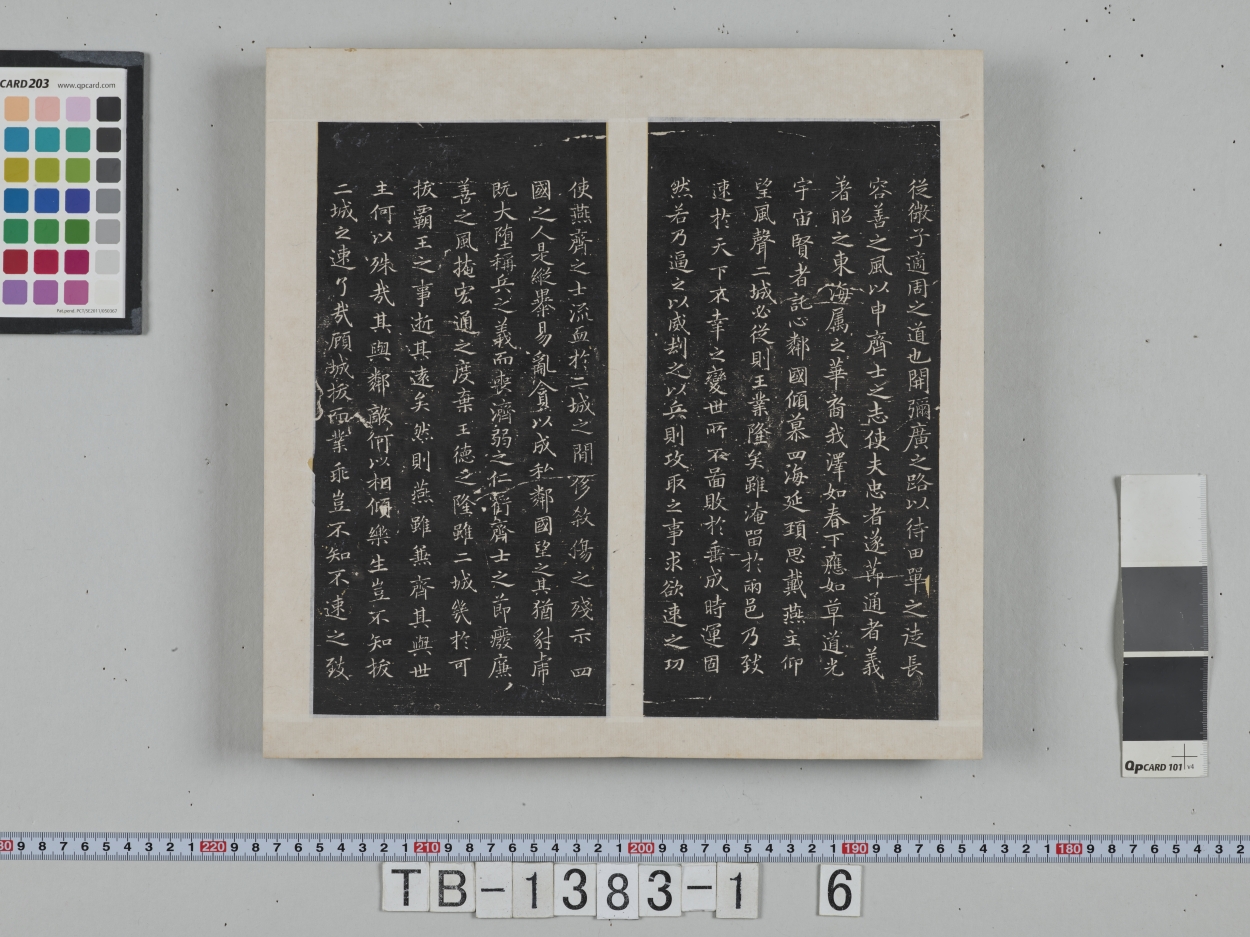 從微子適周之道也開彌廣之路以待田單之徒長
容善之風以申齊士之志使夫忠者遂節通者義
著昭之東海属之華裔我澤如春下應如草道光
宇宙賢者託心鄰國傾慕四海延頸思戴燕主仰
望風聲二城必從則王業隆矣雖淹留於兩邑乃致
速於天下不幸之變世所不啚敗於垂成時運固
然若乃逼之以威刼之以兵則攻取之事求欲速之功
使燕齊之士流血於二城之間侈敘傷之殘示四
國之人是縱暴易亂貪以成私鄰國望之其猶豺虎
既大墮稱兵之義而喪濟弱之仁虧齊士之節廢廉
善之風掩宏通之度棄王德之隆雖二城幾於可
拔霸王之事逝其遠矣然則燕雖兼齊其與世
主何以殊哉其與鄰敵何以相傾樂生豈不知拔
二城之速了哉顧城拔而業乖豈不知不速之致
CARD 203 www.qpcard.com
QpCARD 101 v4
30 9 8 7 6 5 4 3 2 1 220 9 8 7 6 5 4 3 2 1 210 9 8 7 6 5 4 3 2 1 200 9 8 7 6 5 4 3 2 1 190 9 8 7 6 5 4 3 2 1 180 9 8 7 6 5 4 3 2
TB-1383-1 6